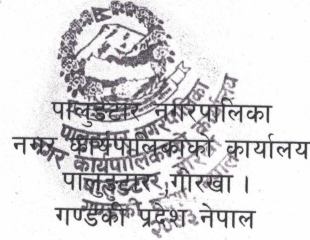 पालुङटार नगरपालिका
नगर कार्यपालिकाको कार्यालय
पालुङटार,गोरखा ।
गण्डकी प्रदेश नेपाल